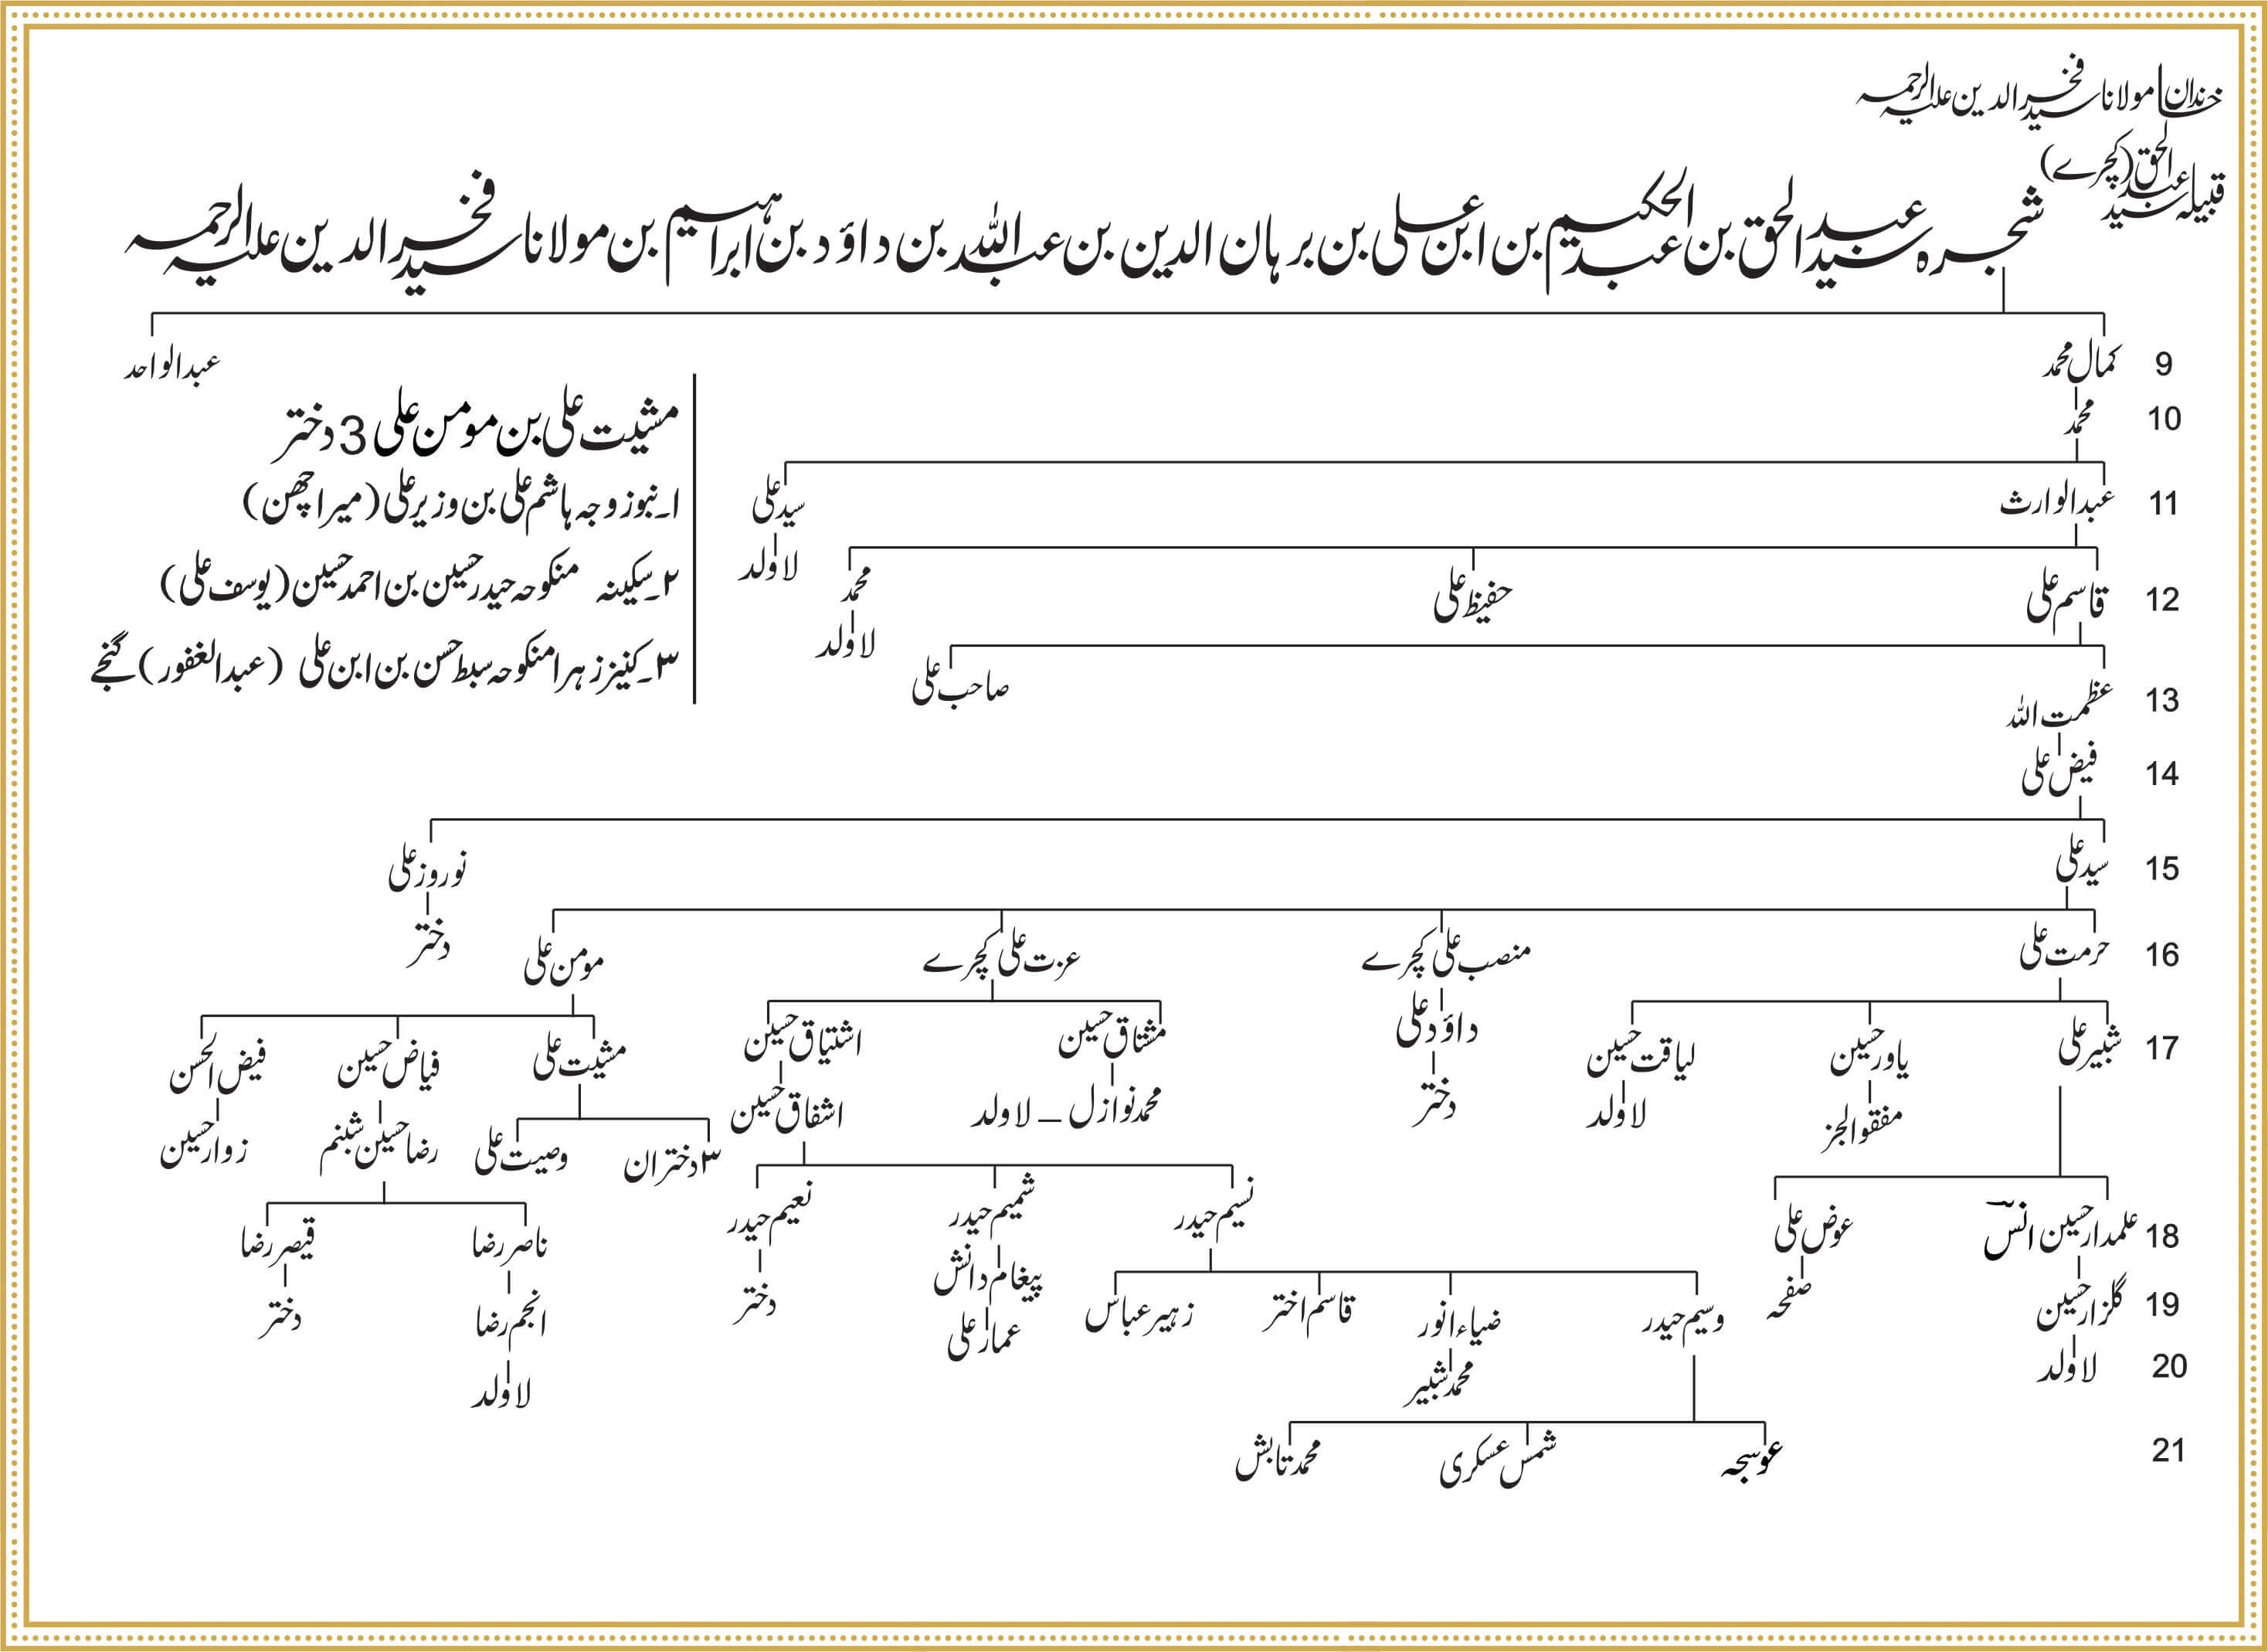 خاندان مولانا سید فخر الدین علیہ الرحمہ
قبیلہ سید عبد الحق (کچرے)
شجرہ سید عبد الحق بن عبد الحکیم بن ابن علی بن برہان الدین بن عبد اللہ بن داؤد بن ابراہیم بن مولانا سید فخر الدین علیہ الرحمہ
9 کمال محمد عبدالواحد
10 محمد
مشیت علی بن مومن علی 3 دختر
11 عبدالوارث سید علی
لاولد
۱۔ نبو زوجہ ہاشم علی بن وزیر علی (میرا چھن)
12 قاسم علی حفیظ علی محمد
لاولد
۲۔ سکینہ منکوحہ حیدر حسین بن احمد حسین (یوسف علی)
۳۔ کنیز زہرا منکوحہ سبط حسن بن ابن علی (عبدالغفور) گنجے
13 عظمت اللہ صاحب علی
14 فیض علی
15 سید علی نوروز علی
دختر
16 حرمت علی منصب علی کچرے عزت علی کچرے مومن علی
17 شبیر علی یاور حسین لیاقت حسین داؤد علی مشتاق حسین اشتیاق حسین مشیت علی فیاض حسین فیض الحسن
مفقو الجز لاولد دختر محمد نوازل – لاولد اشفاق حسین ۳ دختران وصیت علی رضا حسین شبنم زوار حسین
18 علمدار حسین انس عوض علی نسیم حیدر شمیم حیدر نعیم حیدر ناصر رضا قیصر رضا
19 گلزار حسین صفحہ وسیم حیدر ضیاء انور قاسم اختر زہیر عباس پیغام دانش دختر انجم رضا دختر
20 لاولد محمد شبیر عمار علی لاولد
21 عوسجہ شمس عسکری محمد تابش